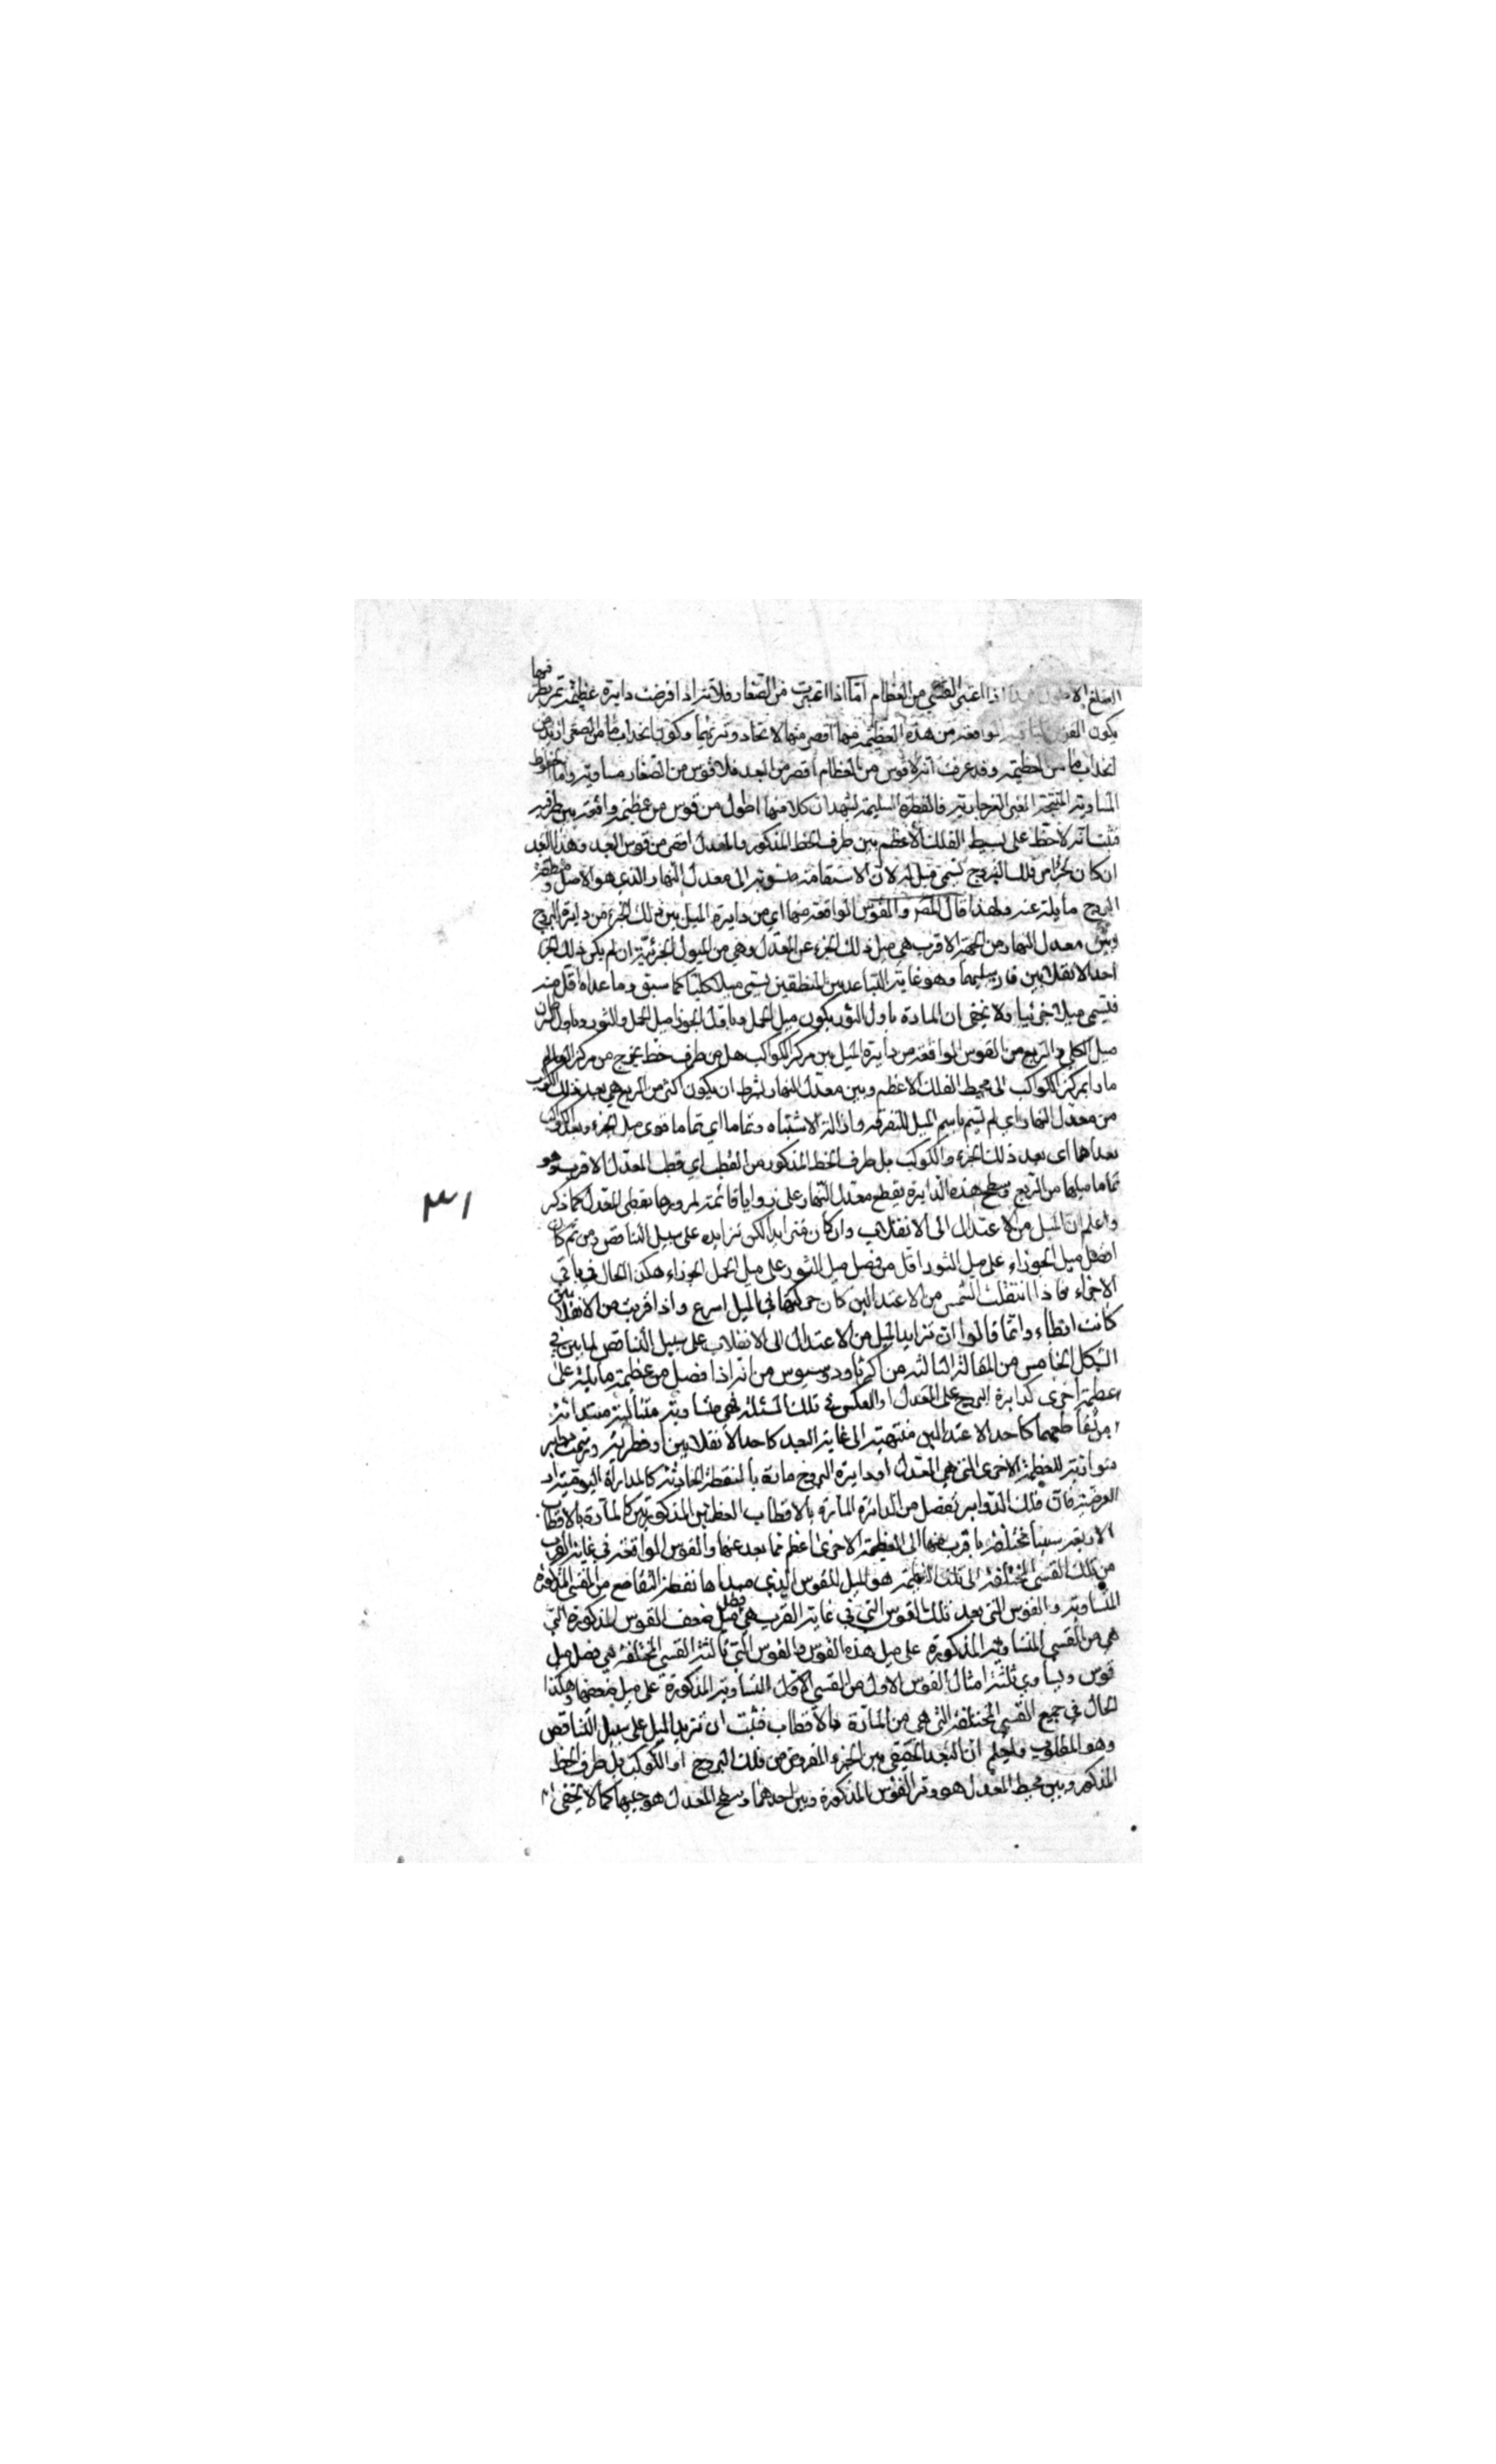 اذا اعتبر القسي من العظام اما اذا اعتبرت من الصغار فلانه اذا فرضت دايرة عظيمة تمر بطرفيها
يكون القوس الواقعة من هذه العظيمة فيها اقصر منها لاتحاد وتريهما وكون انحداب ما من الصغر ازيد من
انحداب ما من العظيمة وقد عرفت انه لا قوس من العظام اقصر من البعد فلا قوس من الصغار مساوية واما الخطوط
المساوية المنتجة الغير الفرجارية فالفطرة السليمة تشهد ان كلا منها اطول من قوس من عظيمة واقعة بين طرفيه
فثبت انه لا خط على بسيط الفلك الاعظم بين طرف الخط المذكور والمعدل اقصر من قوس البعد وهذا البعد
ان كان لجزء من فلك البروج تسمى ميل له لان الاستقامة منسوبة الى معدل النهار الذي هو الاصل ومنطقة
البروج مايلة عنه ولهذا قال المص والقوس الواقعة منها اي من دايرة الميل بين ذلك الجزء من دايرة البروج
وبين معدل النهار من الجهة الاقرب هي ميل ذلك الجزء عن المعدل وهي من الميول الجزئية ان لم يكن ذلك الجزء
احد الانقلابين فان ميلهما وهو غاية التباعد بين المنطقتين يسمى ميلا كليا كما سبق وما عداه اقل منه
فتسمى ميلا جزئيا ولا يخفى ان المادة باول الثور يكون ميل الحمل وباول الجوزا ميل الحمل والثور وباول السرطان
ميل الكلي والربع من القوس الواقعة من دايرة الميل بين مركز الكواكب هل من طرف خط يخرج من مركز العالم
مارا بمركز الكواكب الى محيط الفلك الاعظم وبين معدل النهار بشرط ان يكون اكثر من الربع هي بعد ذلك الكوكب
من معدل النهار اي لم تسم باسم الميل للتفرقة وازالة الاشتباه وتماما اي تماما قوسي ميل الجزء وبعد الكواكب
بعداهما اي بعد ذلك الجزء والكوكب بل طرف الخط المذكور من القطب اي قطب المعدل الاقرب وهو
تماما ميلهما من الربع وسطح هذه الدايرة يقطع معدل النهار على زوايا قائمة لمرورها بقطبي المعدل كما ذكر
واعلم ان الميل من الاعتدال الى الانقلاب وان كان متزايدا لكن تزايده على سبيل التناقص ومن ثم كان
افضل ميل الجوزاء على ميل الثور اقل من فضل ميل الثور على ميل الحمل الجوزاء هكذا الحال في باقي
الاجزاء فاذا انتقلت الشمس من الاعتدالين كان حركتها في الميل اسرع واذا قربت من الانقلابين
كانت ابطاء وانما قالوا ان تزايد الميل من الاعتدال الى الانقلاب على سبيل التناقص لما بين في
الشكل الخامس من المقالة الثالثة من اكر ثاوذوسيوس من انه اذا فصل من عظيمة مايلة على
عظيمة اخرى كدايرة البروج على المعدل او العكس في تلك المسئلة قسي متساوية متتالية مبتدائة
من تقاطعهما كاحد الاعتدالين منتهية الى غاية البعد كاحد الانقلابين او نظرية ورسمت دواير
متوازية للعظيمة الاخرى التي هي المعدل او دايرة البروج مارة بالنقطة الحادثة كالمدارات اليومية او
العرضية فان تلك الدواير تفصل من الدائرة المارة بالاقطاب العظيمتين المذكورتين كالمارة بالاقطاب
الاربعة سبيا مختلفة ما قرب منها الى العظيمة الاخرى اعظم مما بعد عنها والقوس الواقعة في غاية القرب
من تلك القسي المختلفة الى تلك العظيمة هو الميل للقوس الذي مبداها نقطة التقاطع من القسي المذكورة
المتساوية والقوس التي بعد تلك القوس التي في غاية القرب هي فضل ميل ضعف القوس المذكورة التي
هي من القسي المتساوية المذكورة على ميل هذه القوس والقوس التي ثالثة القسي المختلفة هي فضل ميل
قوس ويساوي ثلثة امثال القوس الاول من القسي الاول المتساوية المذكورة على ميل ضعفها وهكذا
الحال في جميع القسي المختلفة التي هي من المارة بالاقطاب فثبت ان تزيد الميل على سبيل التناقص
وهو المطلوب وليعلم ان البعد الحقيقي بين الجزء المفروض من فلك البروج او الكوكب بل طرف الخط
المذكور وبين محيط المعدل هو وتر القوس المذكورة وبين احدهما وسطح المعدل هو جيبها كما لا يخفى
٣١